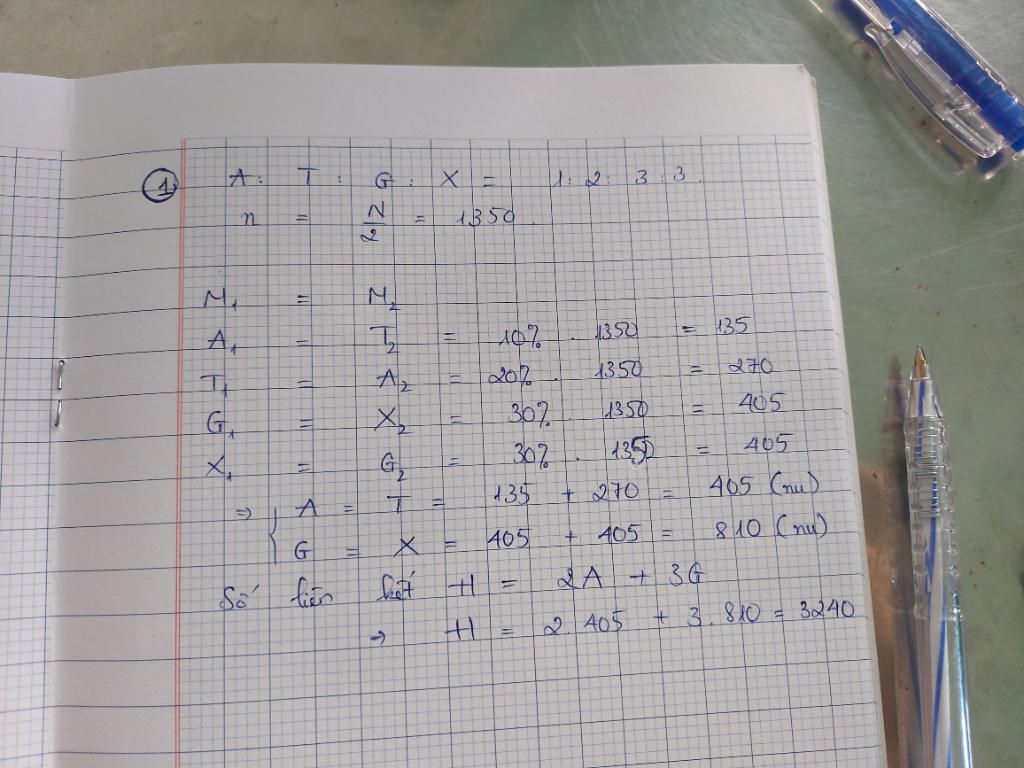 1 A : T : G : X = 1 : 2 : 3 : 3.
n = N/2 = 1350.
M₁ = M₂
A₁ = T₂ = 10% . 1350 = 135
T₁ = A₂ = 20% . 1350 = 270
G₁ = X₂ = 30% . 1350 = 405
X₁ = G₂ = 30% . 1350 = 405
⇒ { A = T = 135 + 270 = 405 (nu)
G = X = 405 + 405 = 810 (nu)
Số liên kết H = 2A + 3G
→ H = 2.405 + 3.810 = 3240